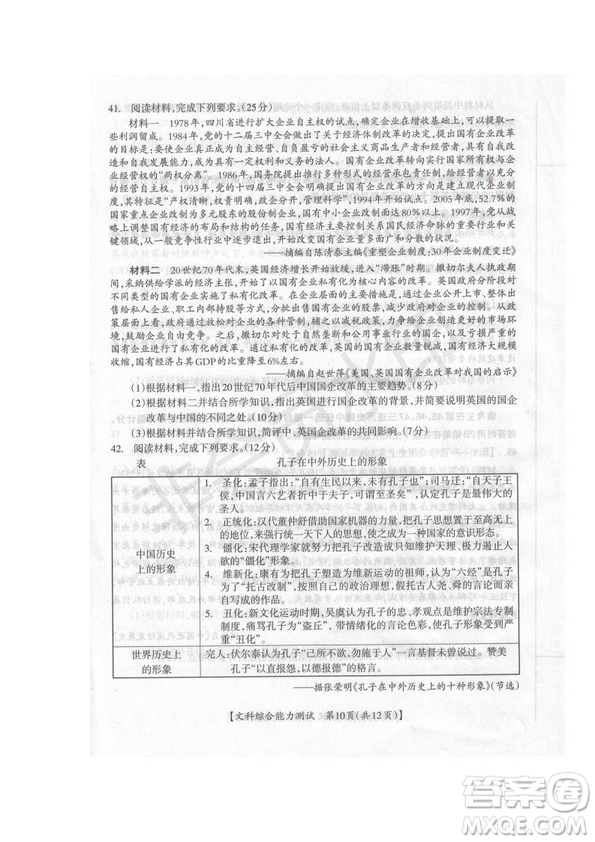 41. 阅读材料,完成下列要求。(25分)
材料一 1978年,四川省进行扩大企业自主权的试点,准确定企业在增收的基础上,可以提取一
些利润留成。1984年,党的十二届三中全会做出了关于经济体制改革的决定,提出国有企业改革
的目标是使企业成为自主经营、自负盈亏的社会主义商品生产者和经营者。国有企业实行所有权和
企业经营权的“两权分离”。1986年,国务院提出推行多种形式的经营承包责任制,给经营者以充分
的经营自主权。1993年,党的十四届三中全会明确提出国有企业改革的方向是建立现代企业制
度,其特征是“产权清晰,权责明确,政企分开,管理科学”,1994年开始试点。2005年底,52.7%的
国家重点企业改制为多元股东的股份制企业,国有中小企业改制面达80%以上。1997年,提出调整
国有经济的布局和结构的任务,国有经济主要控制关系国民经济命脉的重要行业和
关键领域,从一般竞争性行业中逐步退出,开始了新的改革历程。
——摘编自陈清泰主编《重塑企业制度:30年企业制度变迁》
材料二 20世纪70年代末,英国经济增长开始放缓,进入“滞胀”时期。撒切尔夫人执政期
间,采纳供给学派的经济主张,开始了以私有化为核心内容的改革。英国国有企业分阶段对
不同类型的国有企业实行了私有化政策,主要包括通过企业公开上市、整体出
售给私人企业、分拆出售给国有企业的股票、重组后出售等多种形式。从政
策层面上,政府通过放松对企业的管制、打破国有企业在部分行业的垄断地位、
鼓励企业自由竞争。经过私有化的改革,英国的国有企业数量锐减,国有经
济占其GDP的比重降至6%左右。
——摘编自赵世萍《美国、英国国有企业改革对我国的启示》
(1)根据材料一,指出20世纪70年代后中国国企改革的主要趋势。(8分)
(2)根据材料二并结合所学知识,指出英国进行国企改革的背景,并说明英国的国企
改革与中国的不同之处。(10分)
(3)根据材料并结合所学知识,简评中、英国企改革的共同影响。(7分)
42. 阅读材料,完成下列要求。(12分)
表 孔子在中外历史上的形象
中国历史
上的形象
1. 圣化:孟子指出:“自有生民以来,未有孔子也”;司马迁:“自天子王
侯,中国言六艺者折中于夫子,可谓至圣矣”,认定孔子是最伟大的
圣人。
2. 正统化:汉代董仲舒借助国家机器的力量,把孔子思想置于至高无上
的地位,作为实行统一天下人的思想,成为一种国家的意识形态。
3. 僵化:宋代理学家就努力把孔子改造成只知维护天理、极力遏制人
欲的“僵化”形象。
4. 维新化:康有为把孔子塑造为维新运动的祖师,认为“六经”是孔子
为了“托古改制”,表达自己的政治理想,假托古人尧、舜的言论而亲
自写成的作品。
5. 丑化:新文化运动时期,吴虞认为孔子的忠、孝观点是维护宗法专制
制度,痛骂孔子为“盗丘”,带情绪化的言论色彩,使孔子形象受到严
重“丑化”。
世界历史上
的形象
完人:伏尔泰认为孔子“己所不欲,勿施于人”一言基督未曾说过。赞美
孔子“以直报怨,以德报德”的格言。
——据张荣明《孔子在中外历史上的十种形象》(节选)
【文科综合能力测试 第10页(共12页)】
答案圈
MXQE.COM